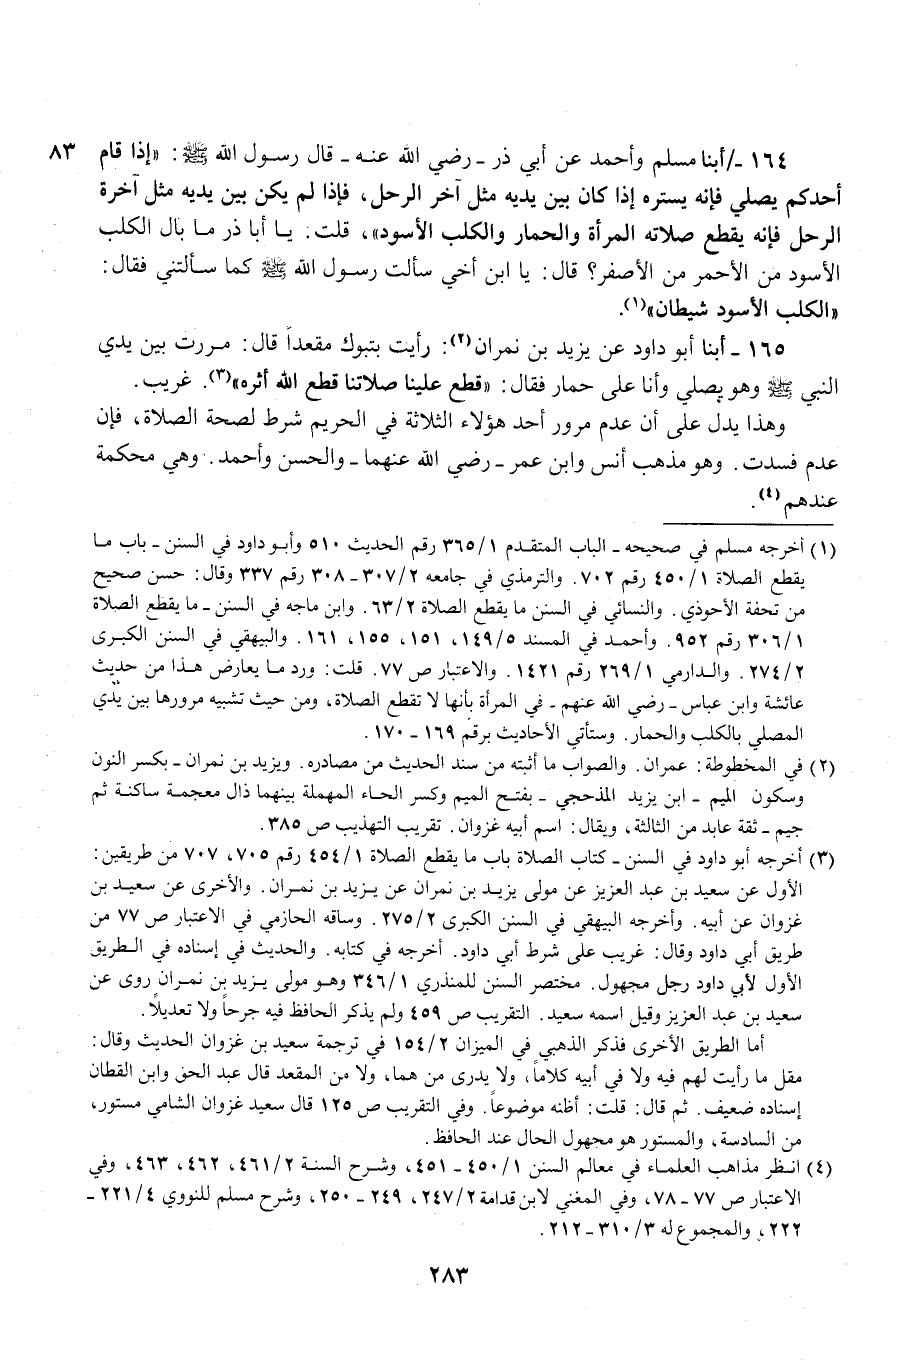 ١٦٤ -/أبنا مسلم وأحمد عن أبي ذر - رضي الله عنه - قال رسول الله ﷺ: «إذا قام ٨٣
أحدكم يصلي فإنه يستره إذا كان بين يديه مثل آخر الرحل، فإذا لم يكن بين يديه مثل آخرة
الرحل فإنه يقطع صلاته المرأة والحمار والكلب الأسود»، قلت: يا أبا ذر ما بال الكلب
الأسود من الأحمر من الأصفر؟ قال: يا ابن أخي سألت رسول الله ﷺ كما سألتني فقال:
«الكلب الأسود شيطان»(١).
١٦٥ - أبنا أبو داود عن يزيد بن نمران(٢): رأيت بتبوك مقعداً قال: مررت بين يدي
النبي ﷺ وهو يصلي وأنا على حمار فقال: «قطع علينا صلاتنا قطع الله أثره»(٣). غريب.
وهذا يدل على أن عدم مرور أحد هؤلاء الثلاثة في الحريم شرط لصحة الصلاة، فإن
عدم فسدت. وهو مذهب أنس وابن عمر - رضي الله عنهما - والحسن وأحمد. وهي محكمة
عندهم(٤).
(١) أخرجه مسلم في صحيحه - الباب المتقدم ٣٦٥/١ رقم الحديث ٥١٠ وأبو داود في السنن - باب ما
يقطع الصلاة ٤٥٠/١ رقم ٧٠٢. والترمذي في جامعه ٣٠٧/٢ - ٣٠٨ رقم ٣٣٧ وقال: حسن صحيح
من تحفة الأحوذي. والنسائي في السنن ما يقطع الصلاة ٦٣/٢. وابن ماجه في السنن - ما يقطع الصلاة
٣٠٦/١ رقم ٩٥٢. وأحمد في المسند ١٤٩/٥، ١٥١، ١٥٥، ١٦١. والبيهقي في السنن الكبرى
٢٧٤/٢. والدارمي ٢٦٩/١ رقم ١٤٢١. والاعتبار ص ٧٧. قلت: ورد ما يعارض هذا من حديث
عائشة وابن عباس - رضي الله عنهم - في المرأة بأنها لا تقطع الصلاة، ومن حيث تشبيه مرورها بين يدي
المصلي بالكلب والحمار. وستأتي الأحاديث برقم ١٦٩ - ١٧٠.
(٢) في المخطوطة: عمران. والصواب ما أثبته من سند الحديث من مصادره. ويزيد بن نمران - بكسر النون
وسكون الميم - ابن يزيد المذحجي - بفتح الميم وكسر الحاء المهملة بينهما ذال معجمة ساكنة ثم
جيم - ثقة عابد من الثالثة، ويقال: اسم أبيه غزوان. تقريب التهذيب ص ٣٨٥.
(٣) أخرجه أبو داود في السنن - كتاب الصلاة باب ما يقطع الصلاة ٤٥٤/١ رقم ٧٠٥، ٧٠٧ من طريقين:
الأول عن سعيد بن عبد العزيز عن مولى يزيد بن نمران عن يزيد بن نمران. والأخرى عن سعيد بن
غزوان عن أبيه. وأخرجه البيهقي في السنن الكبرى ٢٧٥/٢. وساقه الحازمي في الاعتبار ص ٧٧ من
طريق أبي داود وقال: غريب على شرط أبي داود. أخرجه في كتابه. والحديث في إسناده في الطريق
الأول لأبي داود رجل مجهول. مختصر السنن للمنذري ٣٤٦/١ وهو مولى يزيد بن نمران روى عن
سعيد بن عبد العزيز وقيل اسمه سعيد. التقريب ص ٤٥٩ ولم يذكر الحافظ فيه جرحاً ولا تعديلاً.
أما الطريق الأخرى فذكر الذهبي في الميزان ١٥٤/٢ في ترجمة سعيد بن غزوان الحديث وقال:
مقل ما رأيت لهم فيه ولا في أبيه كلاماً، ولا يدرى من هما، ولا من المقعد قال عبد الحق وابن القطان
إسناده ضعيف. ثم قال: قلت: أظنه موضوعاً. وفي التقريب ص ١٢٥ قال سعيد غزوان الشامي مستور،
من السادسة، والمستور هو مجهول الحال عند الحافظ.
(٤) انظر مذاهب العلماء في معالم السنن ٤٥٠/١ - ٤٥١، وشرح السنة ٤٦١/٢، ٤٦٢، ٤٦٣، وفي
الاعتبار ص ٧٧ - ٧٨، وفي المغني لابن قدامة ٢٤٧/٢، ٢٤٩ - ٢٥٠، وشرح مسلم للنووي ٢٢١/٤ -
٢٢٢، والمجموع له ٣١٠/٣ - ٢١٢.
٢٨٣